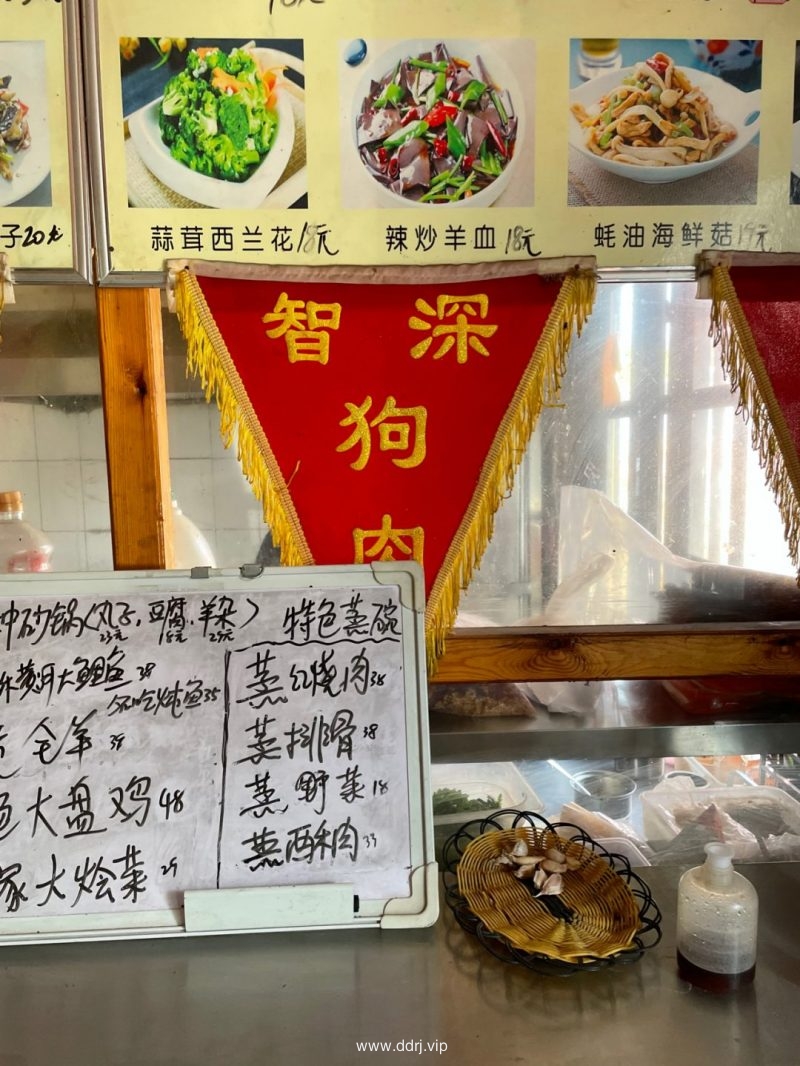 18元
子20元
蒜茸西兰花18元
辣炒羊血18元
蚝油海鲜菇19元
智 深
狗
肉
砂锅(丸子,豆腐,羊杂)
23元 18元 29元
黄河大鲤鱼38
炖鱼35
全羊38
大盘鸡48
大烩菜29
特色蒸碗
蒸红烧肉38
蒸排骨38
蒸野菜18
蒸酥肉33
www.ddrj.vip